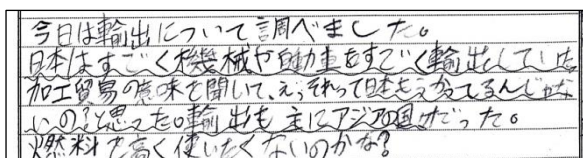 今日は輸出について調べました。
日本はすごく機械や自動車をすごく輸出していた
加工貿易の意味を聞いて、えっそれって日本もうかってるんじゃな
いの?と思った。輸出も主にアジアの国だった。
燃料で高く使いたくないのかな?